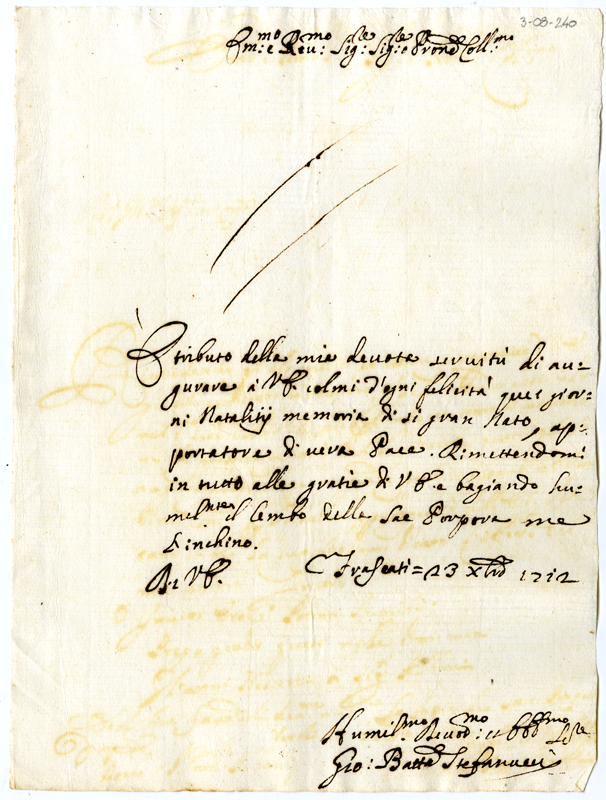 3-08-240
Em:mo e Reu:mo Sig:re Sig:re e Prone Coll:mo
È tributo della mia deuota seruitù di au=
gurare à V.E. colmi d'ogni felicità quei gior=
ni Natalitij memoria di si gran Nato, ap=
portatore di uera Pace. Rimettendomi
in tutto alle gratie di V.E. e bagiando hu=
milmte il lembo della sac Porpora me
L'inchino.
Di V.E. Frascati = 23 Xbre 1712
Humil:mo Deuot:mo et Obb:mo
Gio: Batta Stefanucci